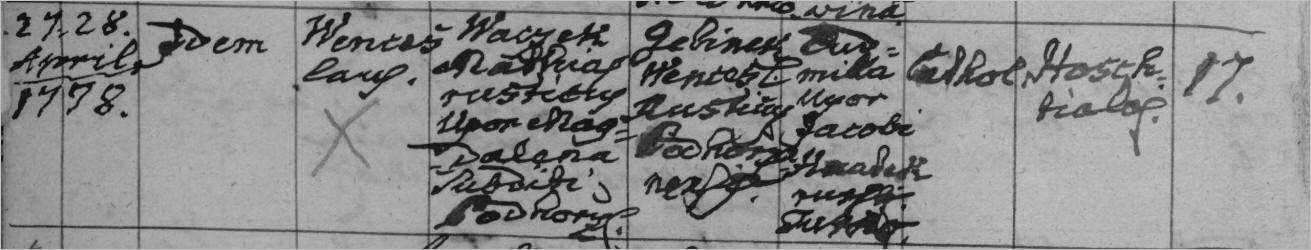 27. 28.
April.
1778.
Idem
Wences
laus.
Waczek
Mathias
rusticus
Uxor Mag=
dalena
Subditi
Podhors.
Jebinek
Wencesl.
Rusticus
Podhor
nensis.
Lud=
milla
Uxor
Jacobi
Hradek
rustici
Cathol.
Hosch=
tialcz.
17.